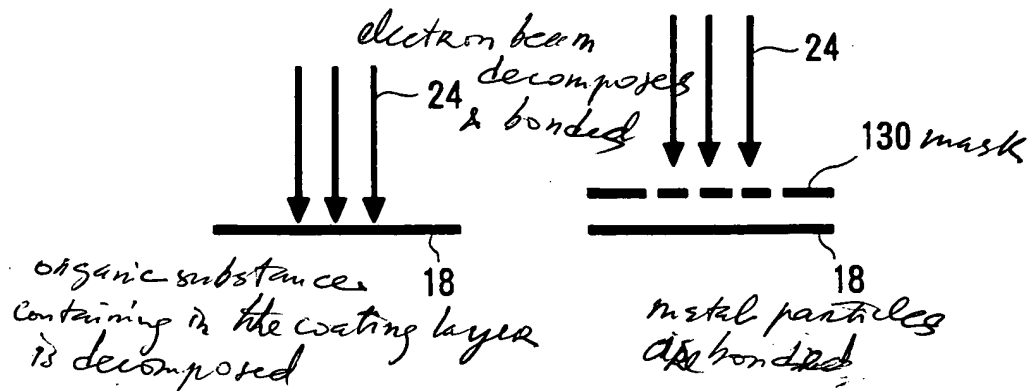 electron beam
decomposes
& bonded
24
24
130 mask
18
18
organic substance
containing in the coating layer
is decomposed
metal particles
are bonded